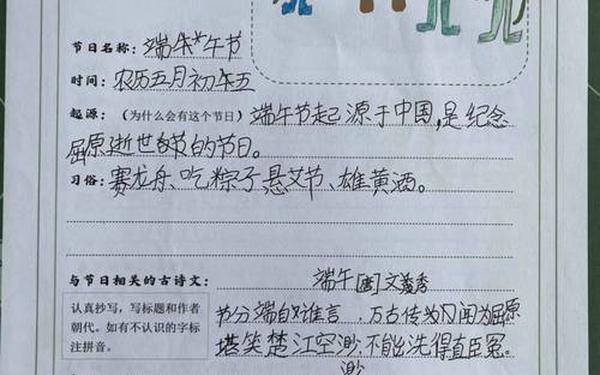 节日名称：端午节
时间：农历五月初五
起源：（为什么会有这个节日）端午节起源于中国,是纪念
屈原逝世的节日。
习俗：赛龙舟、吃粽子悬艾节、雄黄酒。
与节日相关的古诗文：端午[唐]文秀
认真抄写，写标题和作者
朝代。如有不认识的字标
注拼音。
节分端自谁言，万古传为闻为屈原
堪笑楚江空渺,不能洗得直臣冤。
渺